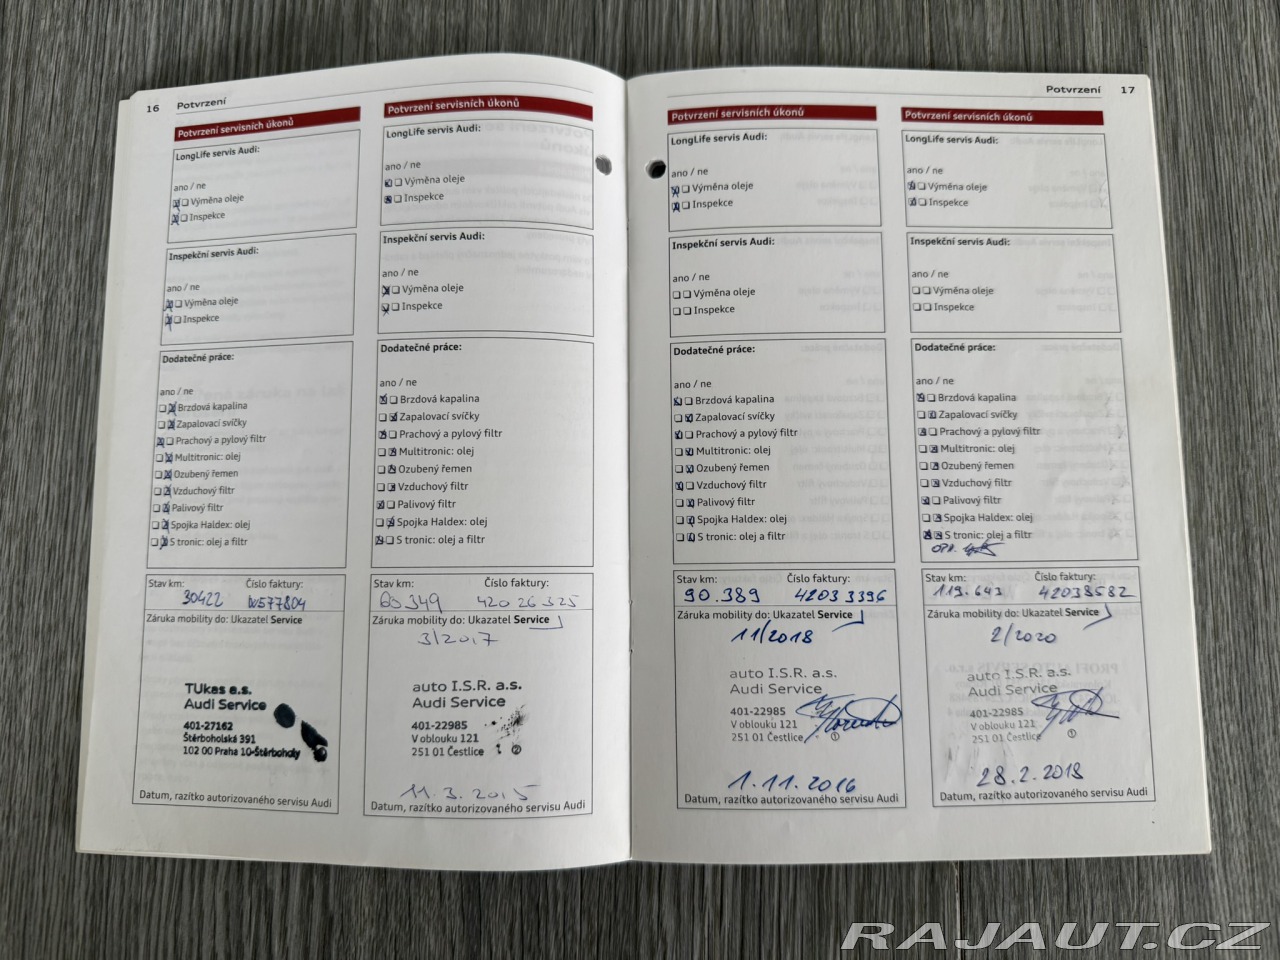 16 Potvrzení
Potvrzení servisních úkonů
LongLife servis Audi:
ano / ne
Výměna oleje
Inspekce
Inspekční servis Audi:
ano / ne
Výměna oleje
Inspekce
Dodatečné práce:
ano / ne
Brzdová kapalina
Zapalovací svíčky
Prachový a pylový filtr
Multitronic: olej
Ozubený řemen
Vzduchový filtr
Palivový filtr
Spojka Haldex: olej
S tronic: olej a filtr
Stav km: Číslo faktury:
30422
Záruka mobility do: Ukazatel Service
TUkas a.s.
Audi Service
401-27162
Štěrboholská 391
102 00 Praha 10-Štěrboholy
Datum, razítko autorizovaného servisu Audi
Potvrzení servisních úkonů
LongLife servis Audi:
ano / ne
Výměna oleje
Inspekce
Inspekční servis Audi:
ano / ne
Výměna oleje
Inspekce
Dodatečné práce:
ano / ne
Brzdová kapalina
Zapalovací svíčky
Prachový a pylový filtr
Multitronic: olej
Ozubený řemen
Vzduchový filtr
Palivový filtr
Spojka Haldex: olej
S tronic: olej a filtr
Stav km: Číslo faktury:
420 26 325
Záruka mobility do: Ukazatel Service
3/2017
auto I.S.R. a.s.
Audi Service
401-22985
V oblouku 121
251 01 Čestlice
11.3.2015
Datum, razítko autorizovaného servisu Audi
Potvrzení 17
Potvrzení servisních úkonů
LongLife servis Audi:
ano / ne
Výměna oleje
Inspekce
Inspekční servis Audi:
ano / ne
Výměna oleje
Inspekce
Dodatečné práce:
ano / ne
Brzdová kapalina
Zapalovací svíčky
Prachový a pylový filtr
Multitronic: olej
Ozubený řemen
Vzduchový filtr
Palivový filtr
Spojka Haldex: olej
S tronic: olej a filtr
Stav km: Číslo faktury:
90.389 42033396
Záruka mobility do: Ukazatel Service
11/2018
auto I.S.R. a.s.
Audi Service
401-22985
V oblouku 121
251 01 Čestlice
1.11.2016
Datum, razítko autorizovaného servisu Audi
Potvrzení servisních úkonů
LongLife servis Audi:
ano / ne
Výměna oleje
Inspekce
Inspekční servis Audi:
ano / ne
Výměna oleje
Inspekce
Dodatečné práce:
ano / ne
Brzdová kapalina
Zapalovací svíčky
Prachový a pylový filtr
Multitronic: olej
Ozubený řemen
Vzduchový filtr
Palivový filtr
Spojka Haldex: olej
S tronic: olej a filtr
OPR.
Stav km: Číslo faktury:
119.643 42038582
Záruka mobility do: Ukazatel Service
2/2020
auto I.S.R. a.s.
Audi Service
401-22985
V oblouku 121
251 01 Čestlice
28.2.2018
Datum, razítko autorizovaného servisu Audi
RAJAUT.CZ